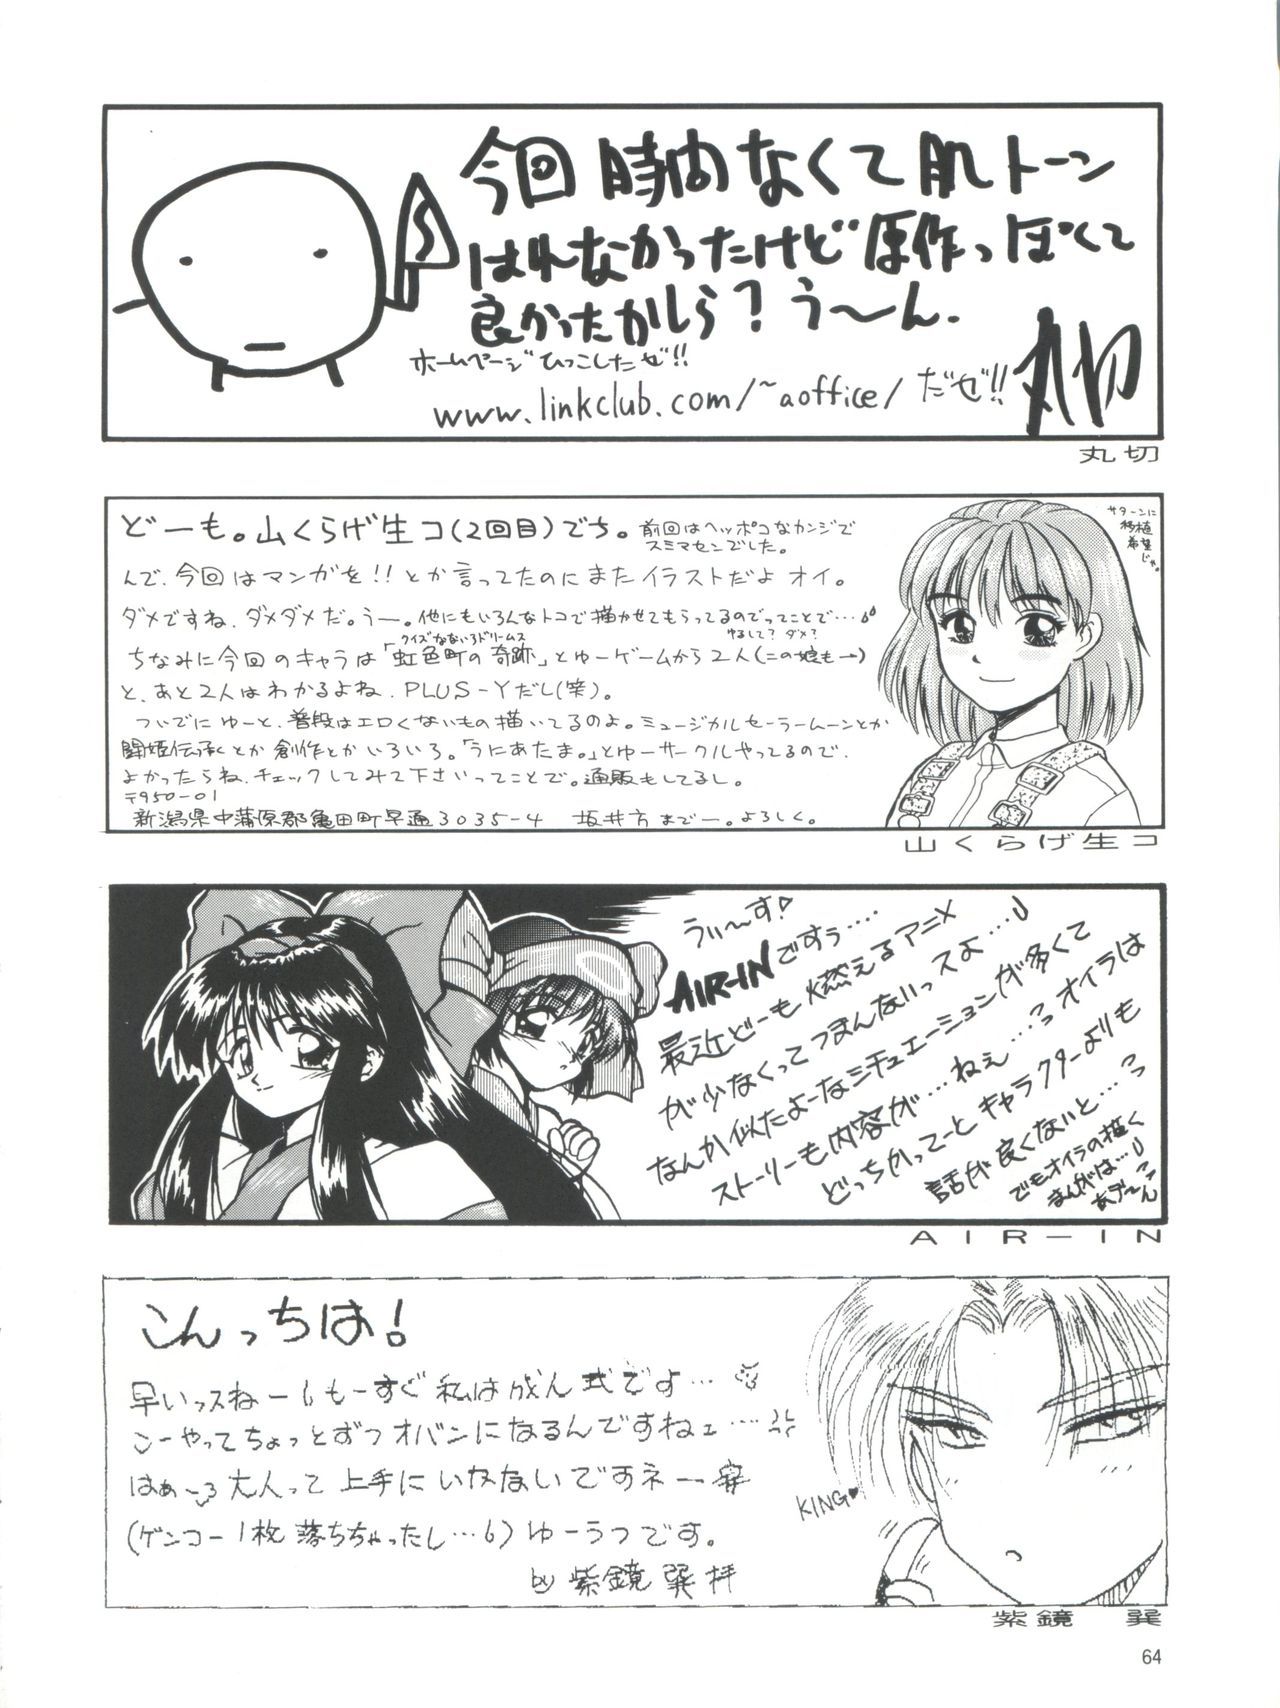 今回 時間なくて肌トーン
はれなかったけど原作っぽくて
良かったかしら？う〜ん.
ホームページひっこしたぜ!!
www.linkclub.com/~aoffice/ だぜ!!
丸切
丸切
どーも。山くらげ生コ(2回目)でち。前回はヘッポコなカンジで
スミマセンでした。
んで、今回はマンガを!!とか言ってたのにまたイラストだよオイ。
ダメですね、ダメダメだ。うー。他にもいろんなトコで描かせてもらってるのでってことで…
ゆるして？ダメ？
クイズなないろドリームス
ちなみに今回のキャラは「虹色町の奇跡」とゆーゲームから2人(この娘も→)
と、あと2人はわかるよね、PLUS-Yだし(笑)。
ついでにゆーと、普段はエロくないもの描いてるのよ。ミュージカルセーラームーンとか
闘姫伝承とか創作とかいろいろ。「うにあたま。」とゆーサークルやってるので、
よかったらね、チェックしてみて下さいってことで。通販もしてるし。
〒950-01
新潟県中蒲原郡亀田町早通3035-4 坂井方までー。よろしく。
サターンに
移植
希望
じゃ。
山くらげ生コ
うぃ〜す!
AIR-INですぅ….
最近どーも燃えるアニメ
が少なくってつまんないっスよ…
なんか似たよーなシチュエーションが多くて
ストーリーも内容が…ねぇ… オイラは
どっちかってーとキャラクターよりも
話が良くないと…
でもオイラの描く
まんがは…
あぅ〜ん
AIR-IN
こんっちは!
早いっスねー もーすぐ私は成人式です…
こーやってちょっとずつオバンになるんですねェ…
はぁ〜 大人って上手にいかないですネー
(ゲンコー1枚落ちちゃったし…) ゆーうつです。
by 紫鏡 巽 拝
KING♥
紫鏡 巽
64